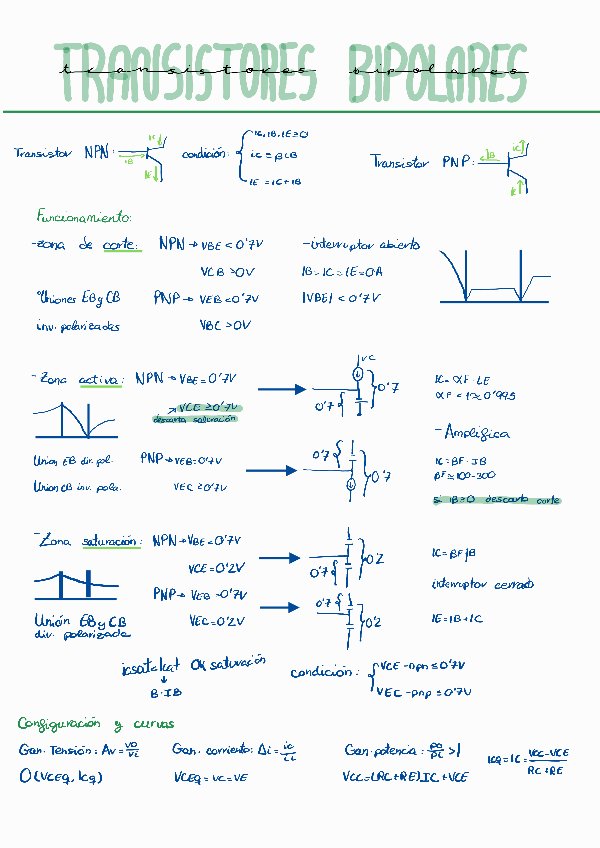 TRANSISTORES BIPOLARES
transistores bipolares
Transistor NPN: iC iB iE condición: iC, iB, iE ≥ 0
iC = βiB
iE = iC + iB
Transistor PNP: iB iC iE
Funcionamiento:
-zona de corte: NPN → VBE < 0'7V -interruptor abierto
VCB > 0V IB = IC = IE = 0A
Uniones EB y CB PNP → VEB < 0'7V |VBE| < 0'7V
inv. polarizadas VBC > 0V
-Zona activa: NPN → VBE = 0'7V
→ VCE ≥ 0'7V
descarta saturación
0'7 0'7
IC = αF · IE
αF = 1 ≈ 0'995
-Amplifica
Union EB dir. pol. PNP → VEB = 0'7V
Union CB inv. pola. VEC ≥ 0'7V
0'7 0'7
IC = βF · IB
βF ≈ 100-300
si IB > 0 descarto corte
-Zona saturación: NPN → VBE = 0'7V
VCE = 0'2V
0'7 0'2
IC = βF IB
interruptor cerrado
PNP → VEB = 0'7V
Unión EB y CB VEC = 0'2V
div. polarizada
0'7 0'2
IE = IB + IC
OK saturación
β · IB
condición: VCE - npn ≤ 0'7V
VEC - pnp ≤ 0'7V
Configuración y curvas
Gan. Tensión: Av = Vo/Vi Gan. corriente: Δi = ic/ii Gan. potencia: po/pi > 1 ICQ = IC = VCC-VCE/RC+RE
O(VCEQ, ICQ) VCEQ = VC = VE VCC = (RC + RE) IC + VCE